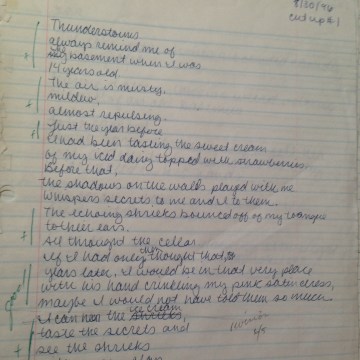 8/20/96
cut up #1
Thunderstorms
always remind me of
my basement when I was
14 years old.
The air is musty,
mildew,
almost repulsing.
Just the year before
I had been tasting the sweet cream
of my iced dairy topped with strawberries.
Before that,
the shadows on the walls played with me
whispers secrets to me and I to them.
The echoing shrieks bounced off of my
to their ears.
All throught the cellar
If I had only then thought that, to
years later, I would be in that very place
with his hand crinkling my pink satin dress,
maybe I would not have told them so much.
I can hea the shrieks, ice cream
taste the secrets and
see the shrieks